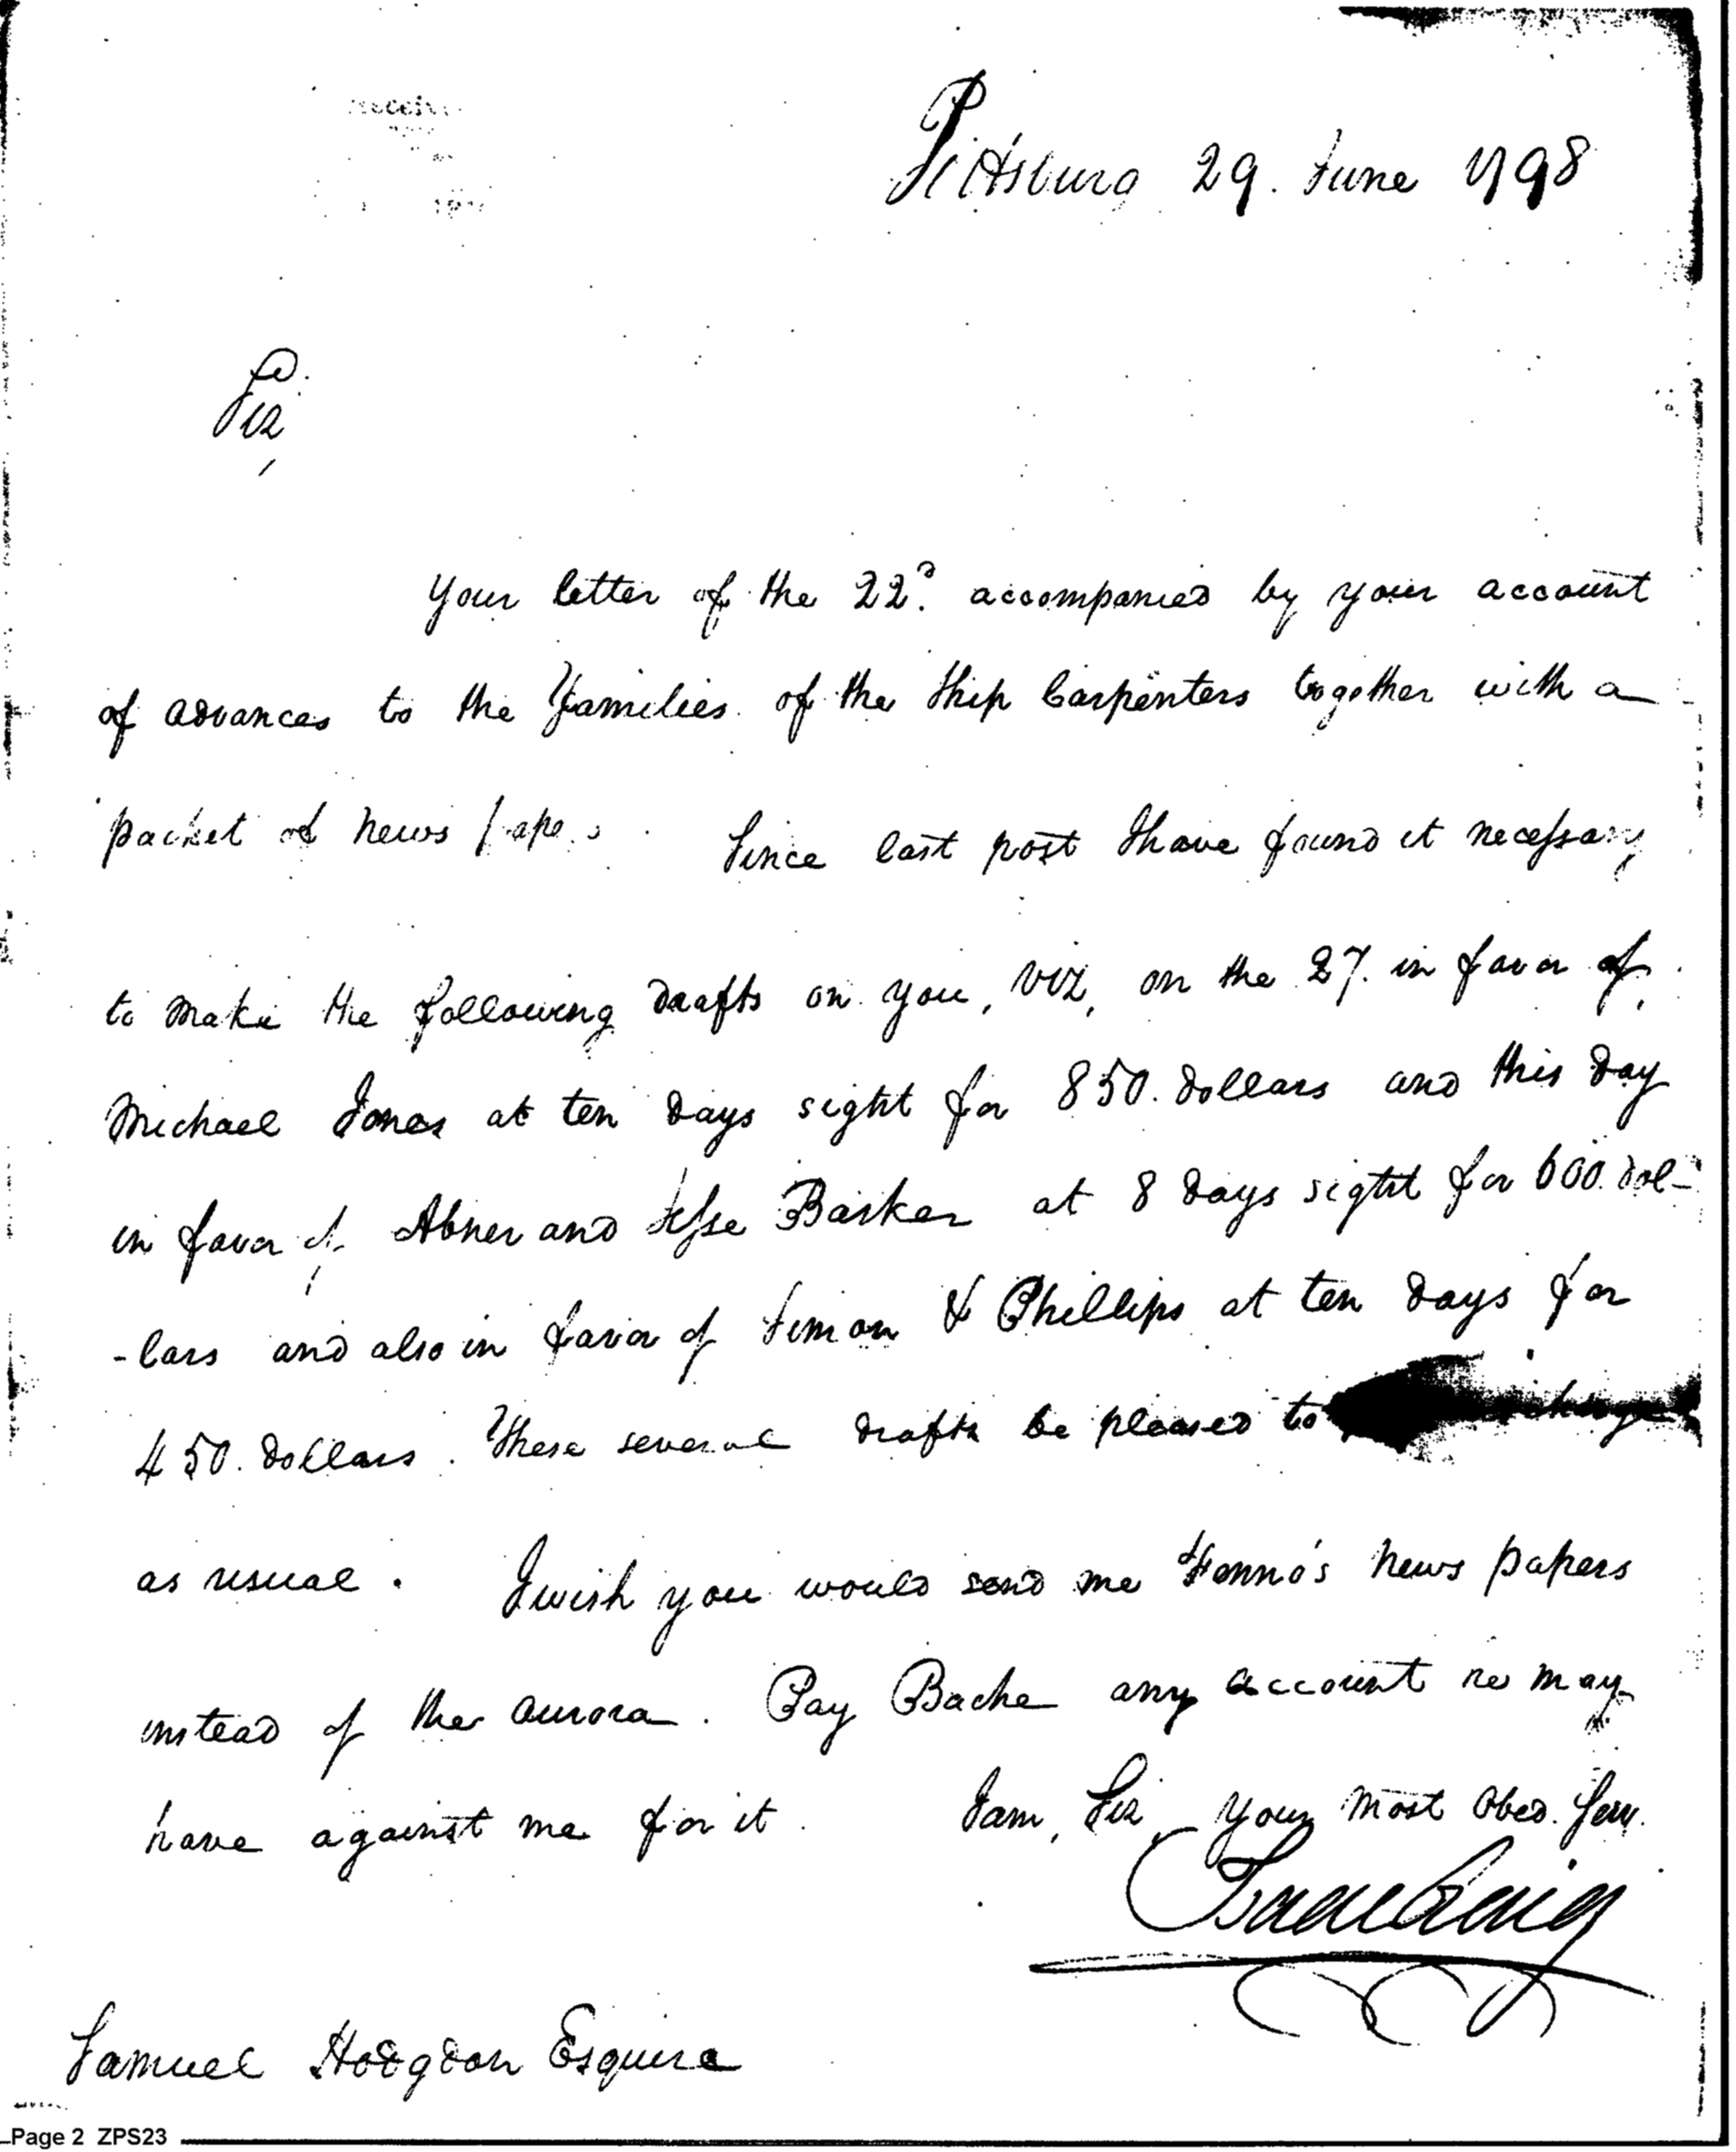 Pittsburg 29. June 1798
Sir
,
Your letter of the 22d. accompanied by your account
of advances to the Families of the Ship Carpenters together with a
packet of news papers. Since last post I have found it necessary
to make the following drafts on you, viz, on the 27. in favor of,
Michael Jones at ten days sight for 850. dollars and this day
in favor of, Abner and Jesse Barker at 8 days sight for 600. dol-
-lars and also in favor of Simon & Phillips at ten days for
450. dollars. These several drafts be pleased to
as usual. I wish you would send me Fenno's news papers
instead of the aurora. Pay Bache any account he may
have against me for it. I am, Sir, your most obed. Serv.
Isaac Craig
Samuel Hodgdon Esquire
Page 2 ZPS23